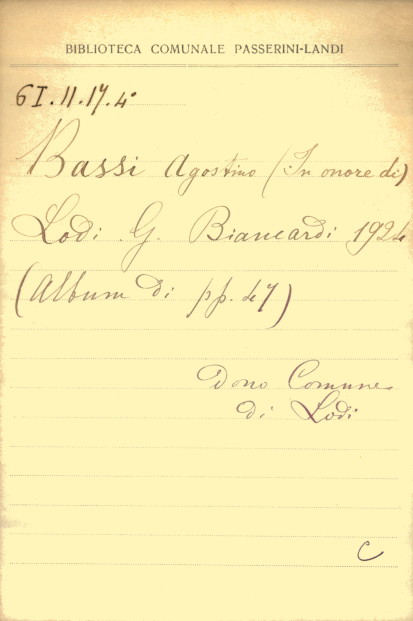 BIBLIOTECA COMUNALE PASSERINI-LANDI
6I.11.17.4°
Bassi Agostino (In onore di)
Lodi. G. Biancardi 1924
(Album di pp. 47)
Dono Comune
di Lodi
C